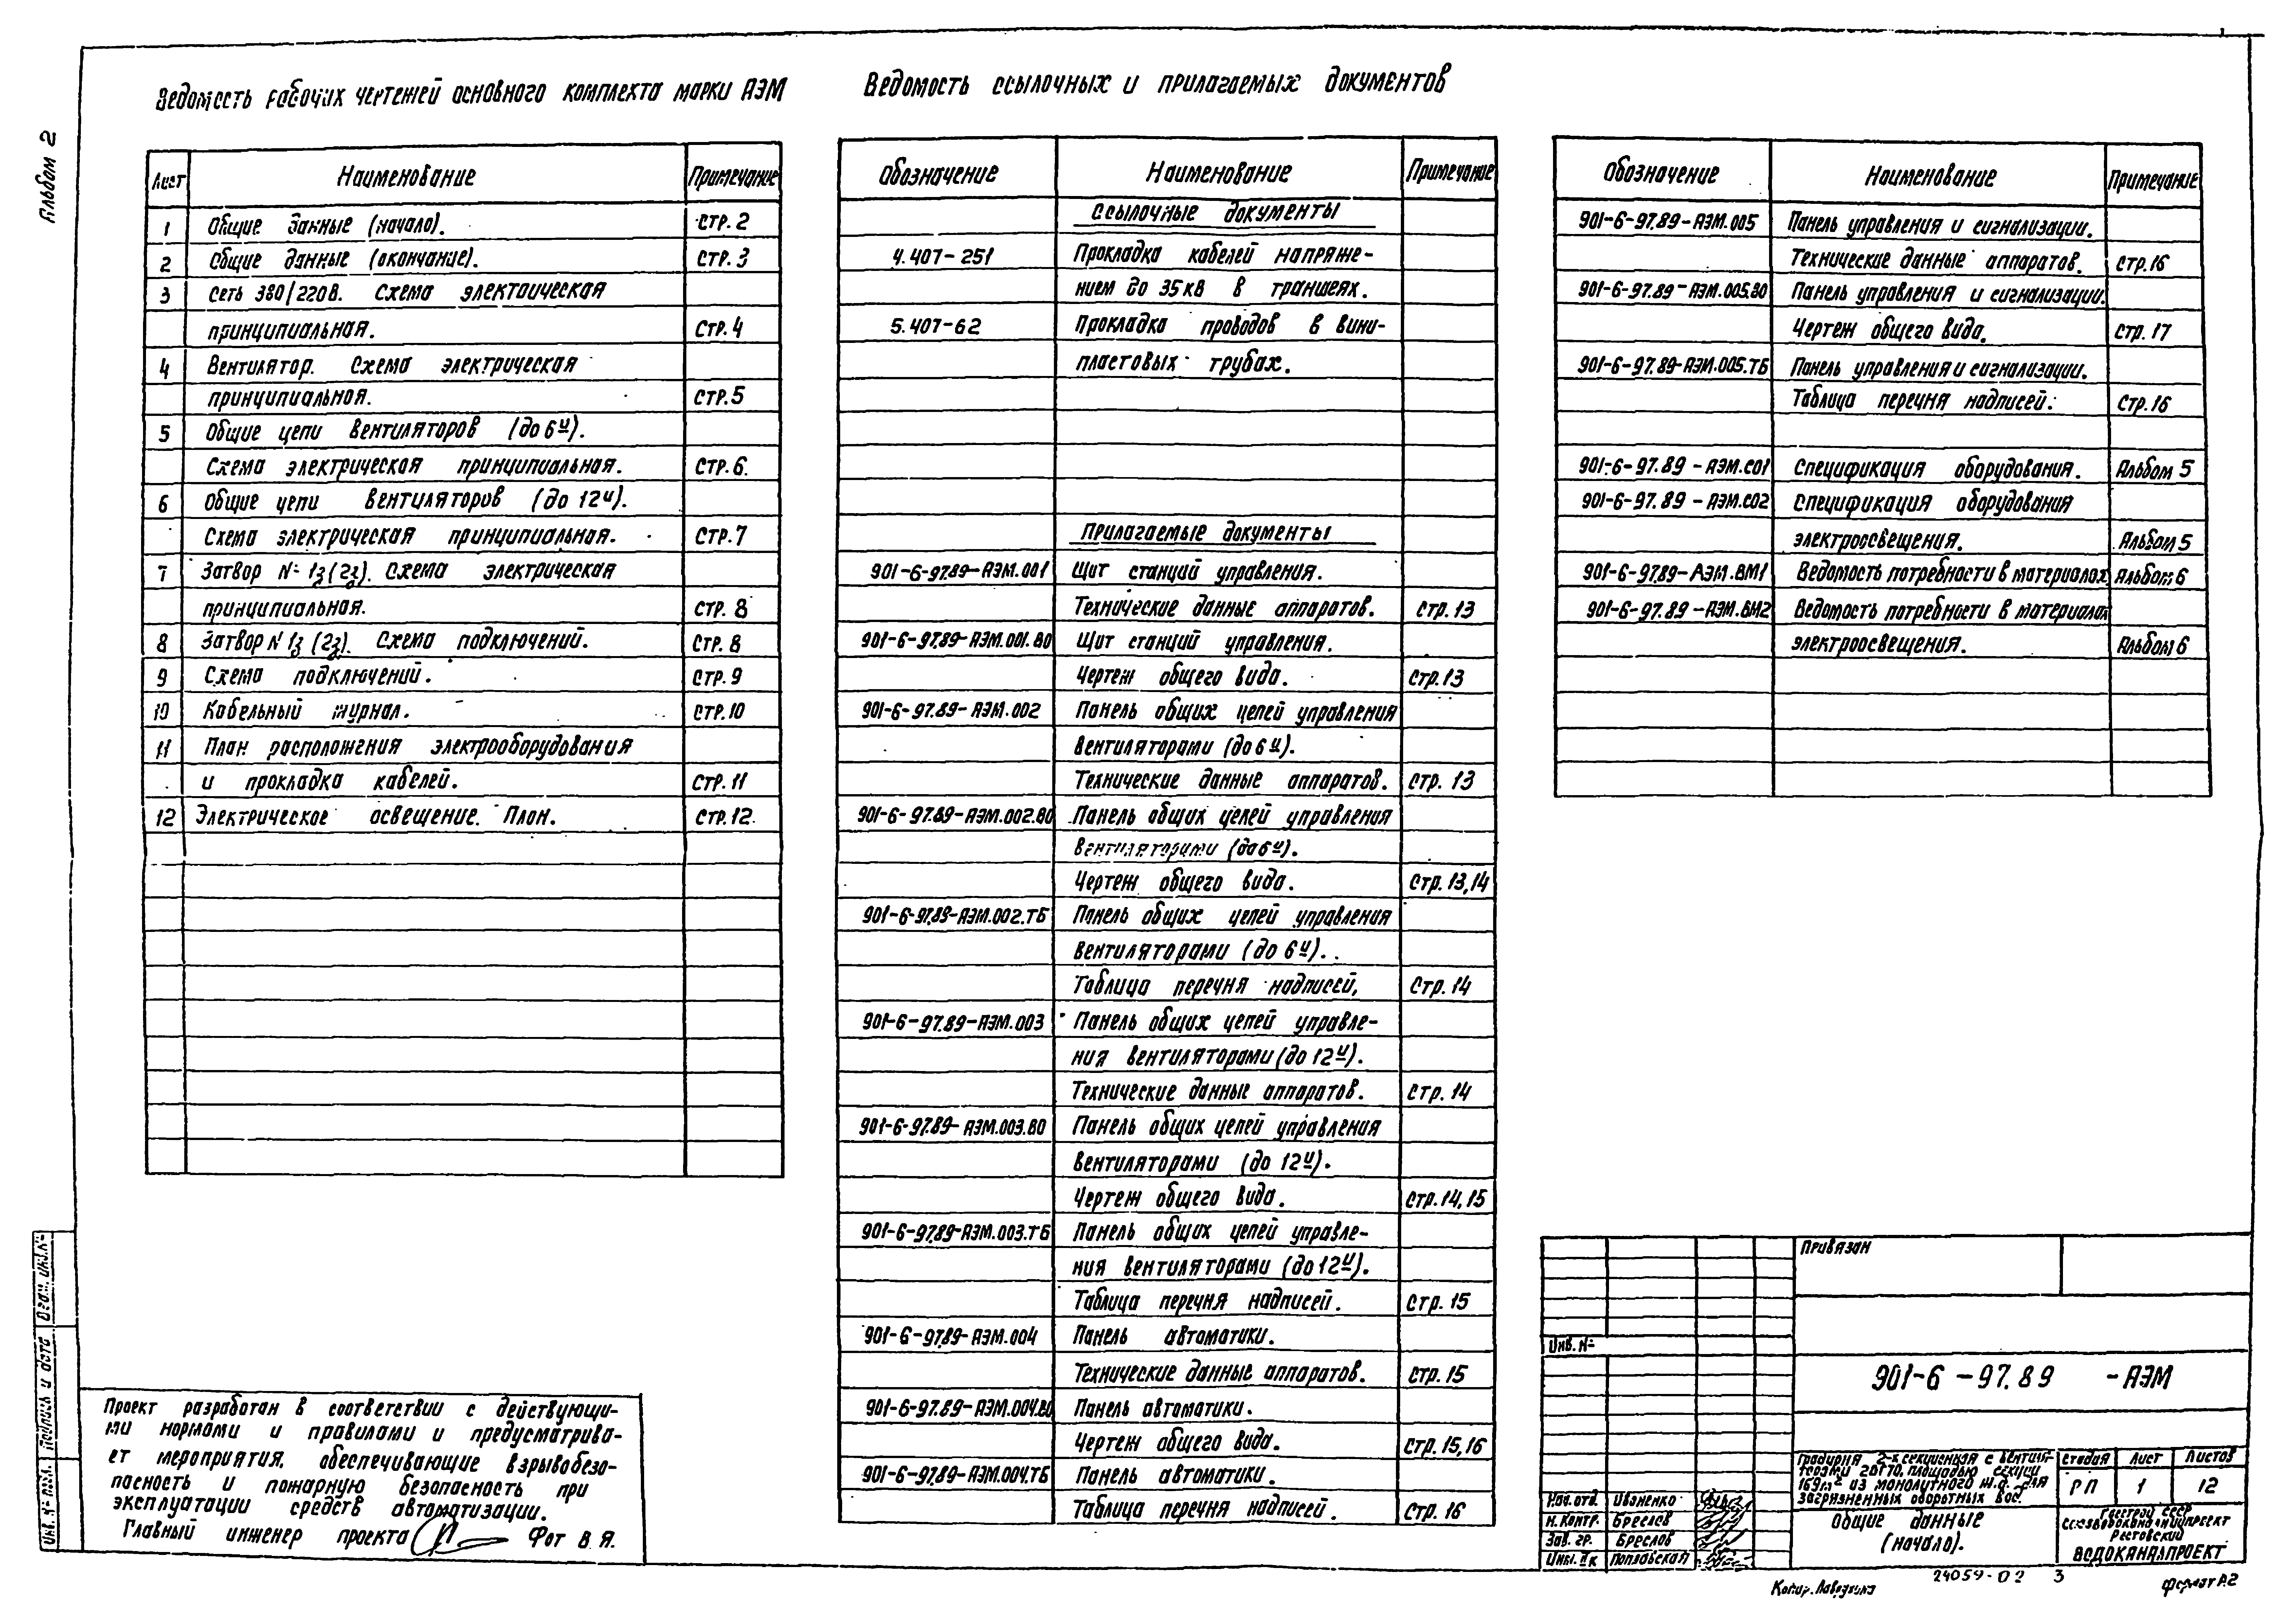 Альбом 2
Ведомость рабочих чертежей основного комплекта марки АЭМ
Лист Наименование Примечание
1 Общие данные (начало). стр. 2
2 Общие данные (окончание). стр. 3
3 Сеть 380/220В. Схема электрическая
принципиальная. стр. 4
4 Вентилятор. Схема электрическая
принципиальная. стр. 5
5 Общие цепи вентиляторов (до 6ч).
Схема электрическая принципиальная. стр. 6.
6 Общие цепи вентиляторов (до 12ч).
Схема электрическая принципиальная. стр. 7
7 Затвор № 1з (2з). Схема электрическая
принципиальная. стр. 8
8 Затвор N 1з (2з). Схема подключений. стр. 8
9 Схема подключений. стр. 9
10 Кабельный журнал. стр. 10
11 План расположения электрооборудования
и прокладка кабелей. стр. 11
12 Электрическое освещение. План. стр. 12.
Ведомость ссылочных и прилагаемых документов
Обозначение Наименование Примечание
Ссылочные документы
4.407-251 Прокладка кабелей напряже-
нием до 35кВ в траншеях.
5.407-62 Прокладка проводов в вини-
пластовых трубах.
Прилагаемые документы
901-6-97.89-АЭМ.001 Щит станций управления.
Технические данные аппаратов. стр. 13
901-6-97.89-АЭМ.001.ВО Щит станций управления.
Чертеж общего вида. стр. 13
901-6-97.89-АЭМ.002 Панель общих цепей управления
вентиляторами (до 6ч).
Технические данные аппаратов. стр. 13
901-6-97.89-АЭМ.002.ВО Панель общих цепей управления
вентиляторами (до 6ч).
Чертеж общего вида. стр. 13,14
901-6-97.89-АЭМ.002.ТБ Панель общих цепей управления
вентиляторами (до 6ч).
Таблица перечня надписей, стр. 14
901-6-97.89-АЭМ.003 Панель общих цепей управле-
ния вентиляторами (до 12ч).
Технические данные аппаратов. стр. 14
901-6-97.89-АЭМ.003.ВО Панель общих цепей управления
вентиляторами (до 12ч).
Чертеж общего вида. стр. 14,15
901-6-97.89-АЭМ.003.ТБ Панель общих цепей управле-
ния вентиляторами (до 12ч).
Таблица перечня надписей. стр. 15
901-6-97.89-АЭМ.004 Панель автоматики.
Технические данные аппаратов. стр. 15
901-6-97.89-АЭМ.004.ВО Панель автоматики.
Чертеж общего вида. стр. 15,16
901-6-97.89-АЭМ.004.ТБ Панель автоматики.
Таблица перечня надписей. стр. 16
Обозначение Наименование Примечание
901-6-97.89-АЭМ.005 Панель управления и сигнализации.
Технические данные аппаратов. стр. 16
901-6-97.89-АЭМ.005.ВО Панель управления и сигнализации.
Чертеж общего вида. стр. 17
901-6-97.89-АЭМ.005.ТБ Панель управления и сигнализации.
Таблица перечня надписей. стр. 16
901-6-97.89-АЭМ.СО1 Спецификация оборудования. Альбом 5
901-6-97.89-АЭМ.СО2 Спецификация оборудования
электроосвещения. Альбом 5
901-6-97.89-АЭМ.ВМ1 Ведомость потребности в материалах Альбом 6
901-6-97.89-АЭМ.ВМ2 Ведомость потребности в материалах
электроосвещения. Альбом 6
Проект разработан в соответствии с действующи-
ми нормами и правилами и предусматрива-
ет мероприятия, обеспечивающие взрывобезо-
пасность и пожарную безопасность при
эксплуатации средств автоматизации.
Главный инженер проекта Фот В.Я.
Инв. № подл. Подпись и дата Взам. инв. №
Привязан
Инв. №
901-6-97.89 -АЭМ
Градирня 2-х секционная с вентиля-
торами 2ВГ70, площадью секции
169м² из монолитного ж.б. для
загрязненных оборотных вод.
Стадия Лист Листов
РП 1 12
Нач. отд. Иваненко
Н. контр. Бреслов
Зав. гр. Бреслов
Инж. IIк Поплавская
Общие данные
(начало).
Госстрой СССР
Союзводоканалпроект
Ростовский
ВОДОКАНАЛПРОЕКТ
24059-02 3
Копир.
Формат А2